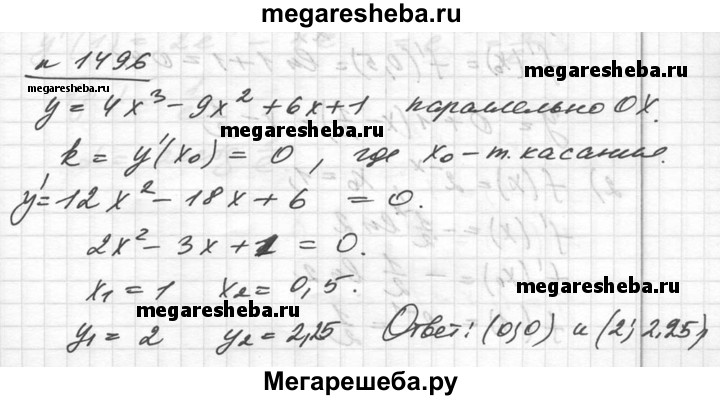 megaresheba.ru
n 1496
megaresheba.ru megaresheba.ru
y = 4x³ - 9x² + 6x + 1 параллельно OX.
megaresheba.ru
k = y'(x₀) = 0, где x₀ - т. касания.
y' = 12x² - 18x + 6 = 0.
2x² - 3x + 1 = 0.
x₁ = 1 x₂ = 0,5.
megaresheba.ru megaresheba.ru
y₁ = 2 y₂ = 2,25 Ответ: (0; 0) и (2; 2,25)
Мегарешеба.ру